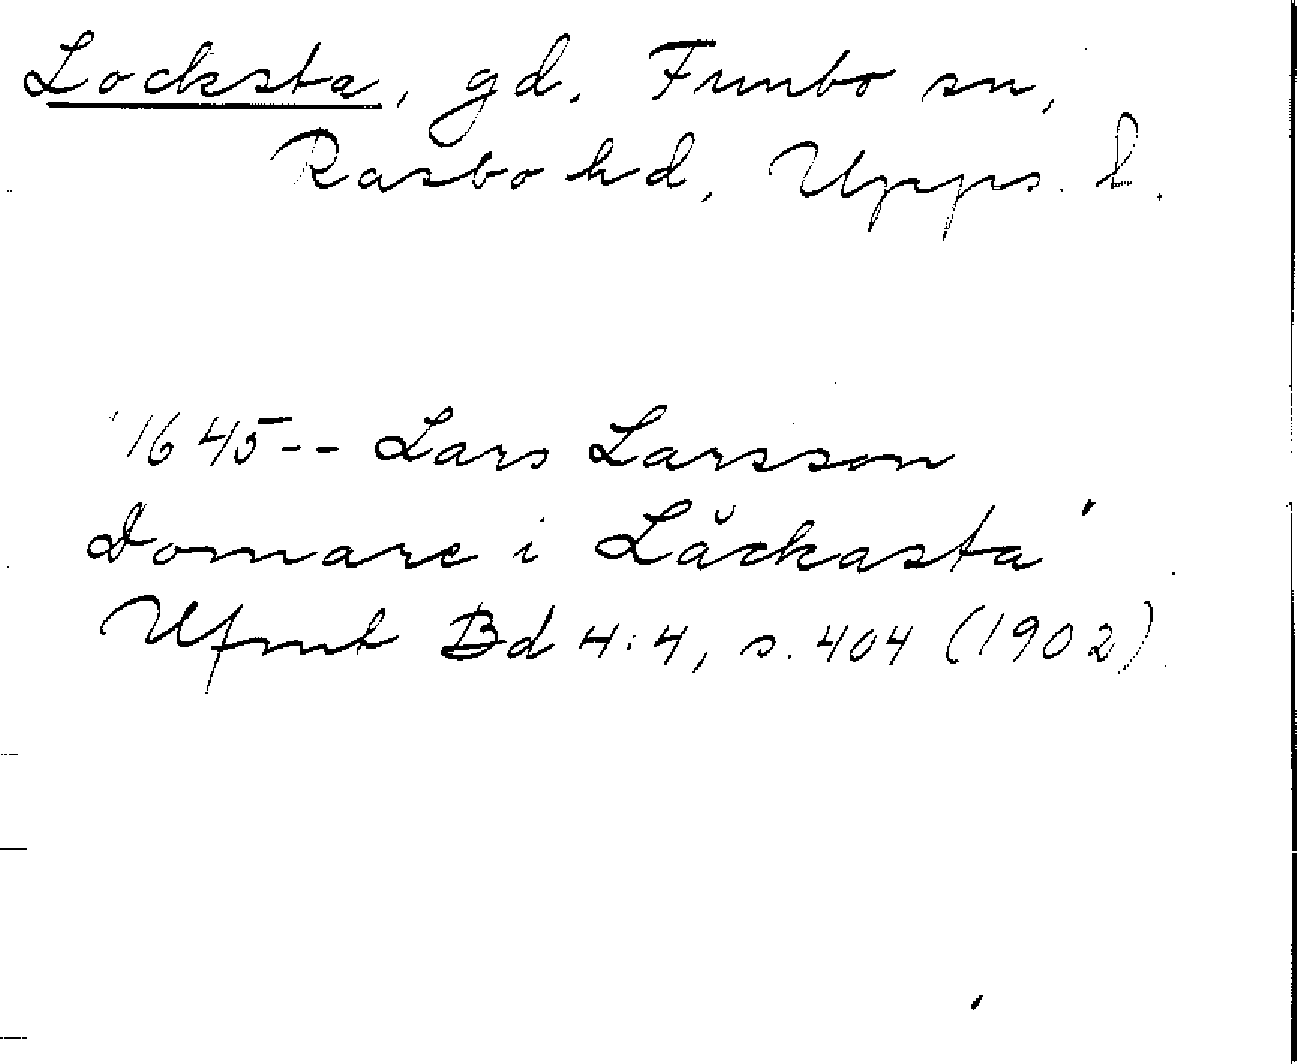 Locksta, gd. Funbo sn,
Rasbo hd, Upps. l.
"1645-- Lars Larsson
Domare i Låckasta"
Ufmt Bd 4:4, s. 404 (1902)